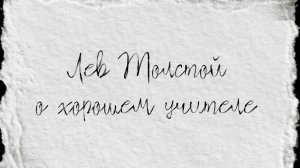 Лев Толстой
о хорошем учителе